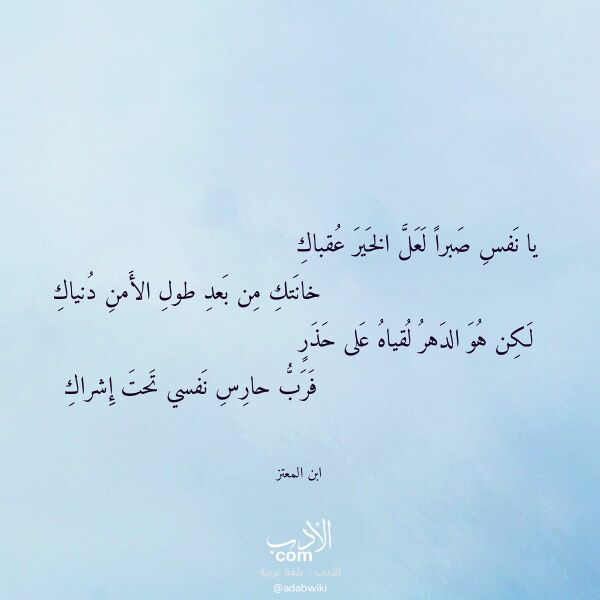 يا نَفسِ صَبراً لَعَلَّ الخَيرَ عُقباكِ
خانَتكِ مِن بَعدِ طولِ الأَمنِ دُنياكِ
لَكِن هُوَ الدَهرُ لُقياهُ عَلى حَذَرٍ
فَرَبُّ حارِسِ نَفسي تَحتَ إِشراكِ
ابن المعتز
الأدب
com
الأدب .. بلغة عربية
@adabwiki